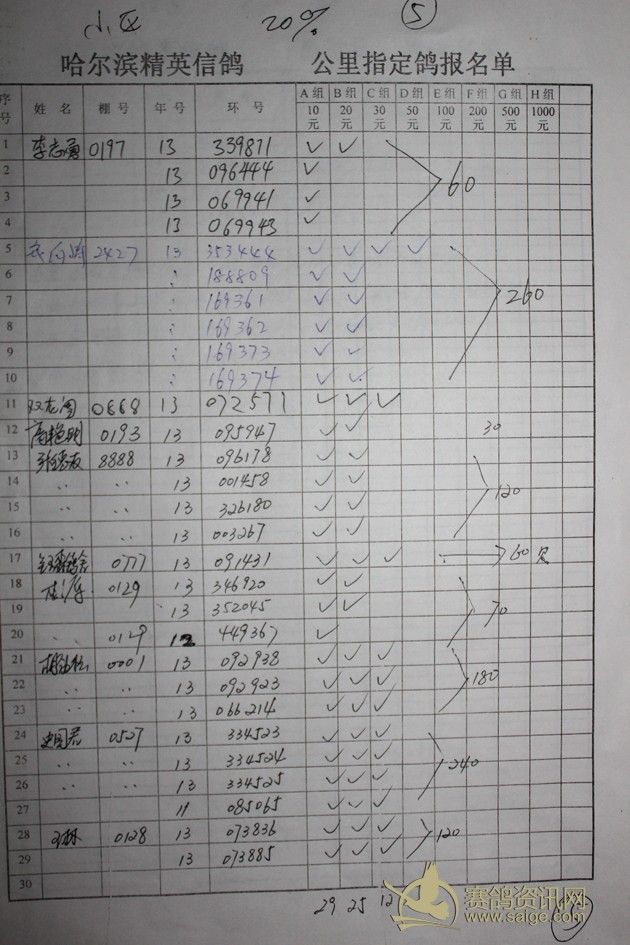 小区 20% ⑤
哈尔滨精英信鸽 公里指定鸽报名单
序号 姓名 棚号 年号 环号 A组10元 B组20元 C组30元 D组50元 E组100元 F组200元 G组500元 H组1000元
1 李志勇 0197 13 339871 ✓ ✓
2 13 096444 ✓
3 13 069941 ✓ 60
4 13 069943 ✓
5 2427 13 353444 ✓ ✓ ✓ ✓
6 : 188809 ✓ ✓
7 : 169361 ✓ ✓ 260
8 : 169362 ✓ ✓
9 : 169373 ✓ ✓
10 : 169374 ✓ ✓
11 双龙阁 0668 13 072571 ✓ ✓ ✓
12 0193 13 095947 ✓ ✓ 30
13 8888 13 096178 ✓ ✓
14 〃 〃 13 001458 ✓ ✓ 120
15 〃 〃 13 326180 ✓ ✓
16 〃 〃 13 003267 ✓ ✓
17 0777 13 091431 ✓ ✓ ✓ 60
18 0129 13 346920 ✓ ✓
19 13 352045 ✓ ✓ 70
20 〃 0129 12 449367 ✓
21 0001 13 092938 ✓ ✓ ✓
22 〃 〃 13 092923 ✓ ✓ ✓ 180
23 〃 〃 13 066214 ✓ ✓ ✓
24 史国君 0527 13 334523 ✓ ✓ ✓
25 〃 〃 13 334524 ✓ ✓ ✓ 240
26 〃 〃 13 334525 ✓ ✓ ✓
27 11 085065 ✓ ✓ ✓
28 王林 0128 13 073836 ✓ ✓ ✓ 120
29 13 073885 ✓ ✓ ✓
30
29 25 12
赛鸽资讯网
www.saige.com